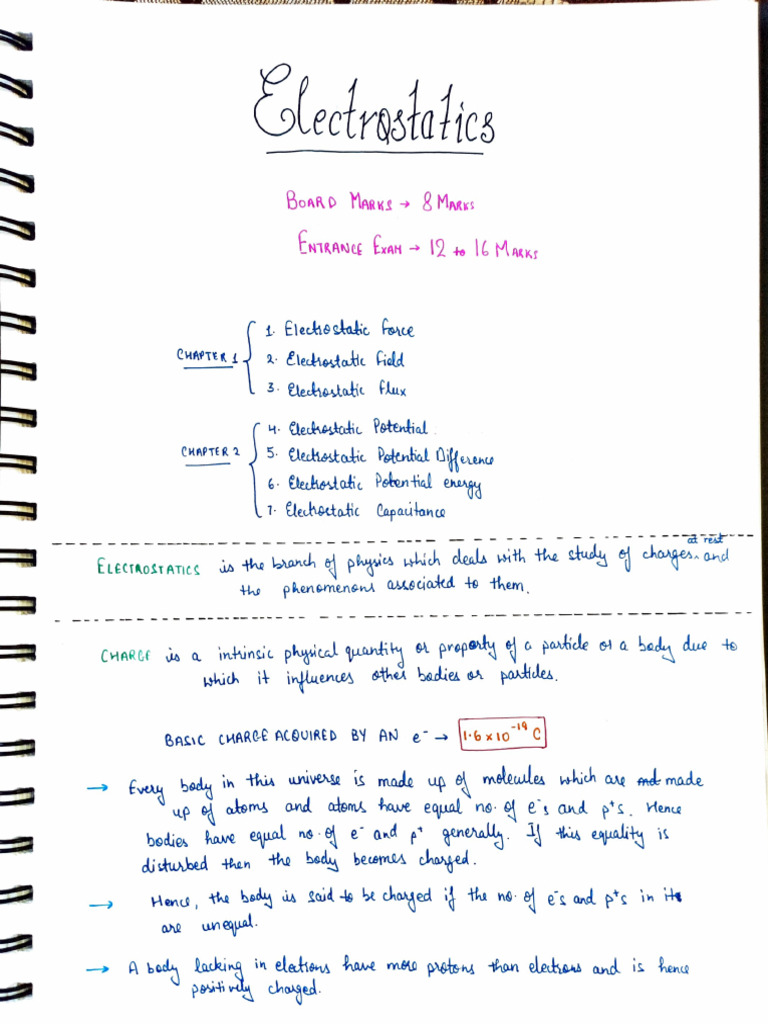 Electrostatics
BOARD MARKS → 8 MARKS
ENTRANCE EXAM → 12 to 16 MARKS
CHAPTER 1
1. Electrostatic Force
2. Electrostatic Field
3. Electrostatic Flux
CHAPTER 2
4. Electrostatic Potential.
5. Electrostatic Potential Difference
6. Electrostatic Potential energy
7. Electrostatic Capacitance
at rest
ELECTROSTATICS is the branch of physics which deals with the study of charges and
the phenomenons associated to them.
CHARGE is a intrinsic physical quantity or property of a particle or a body due to
which it influences other bodies or particles.
BASIC CHARGE ACQUIRED BY AN e⁻ → 1.6 × 10⁻¹⁹ C
→ Every body in this universe is made up of molecules which are made
up of atoms and atoms have equal no. of e⁻s and p⁺s. Hence
bodies have equal no. of e⁻ and p⁺ generally. If this equality is
disturbed then the body becomes charged.
→ Hence, the body is said to be charged if the no. of e⁻s and p⁺s in it
are unequal.
→ A body lacking in elections have more protons than electrons and is hence
positively charged.